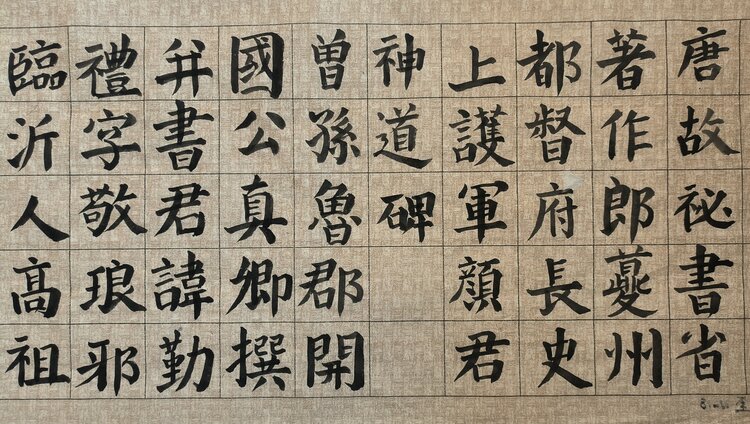 唐故祕書省
著作郎夔州
都督府長史
上護軍顏君
神道碑
曾孫魯郡開
國公真卿撰
并書君諱勤
禮字敬琅邪
臨沂人高祖